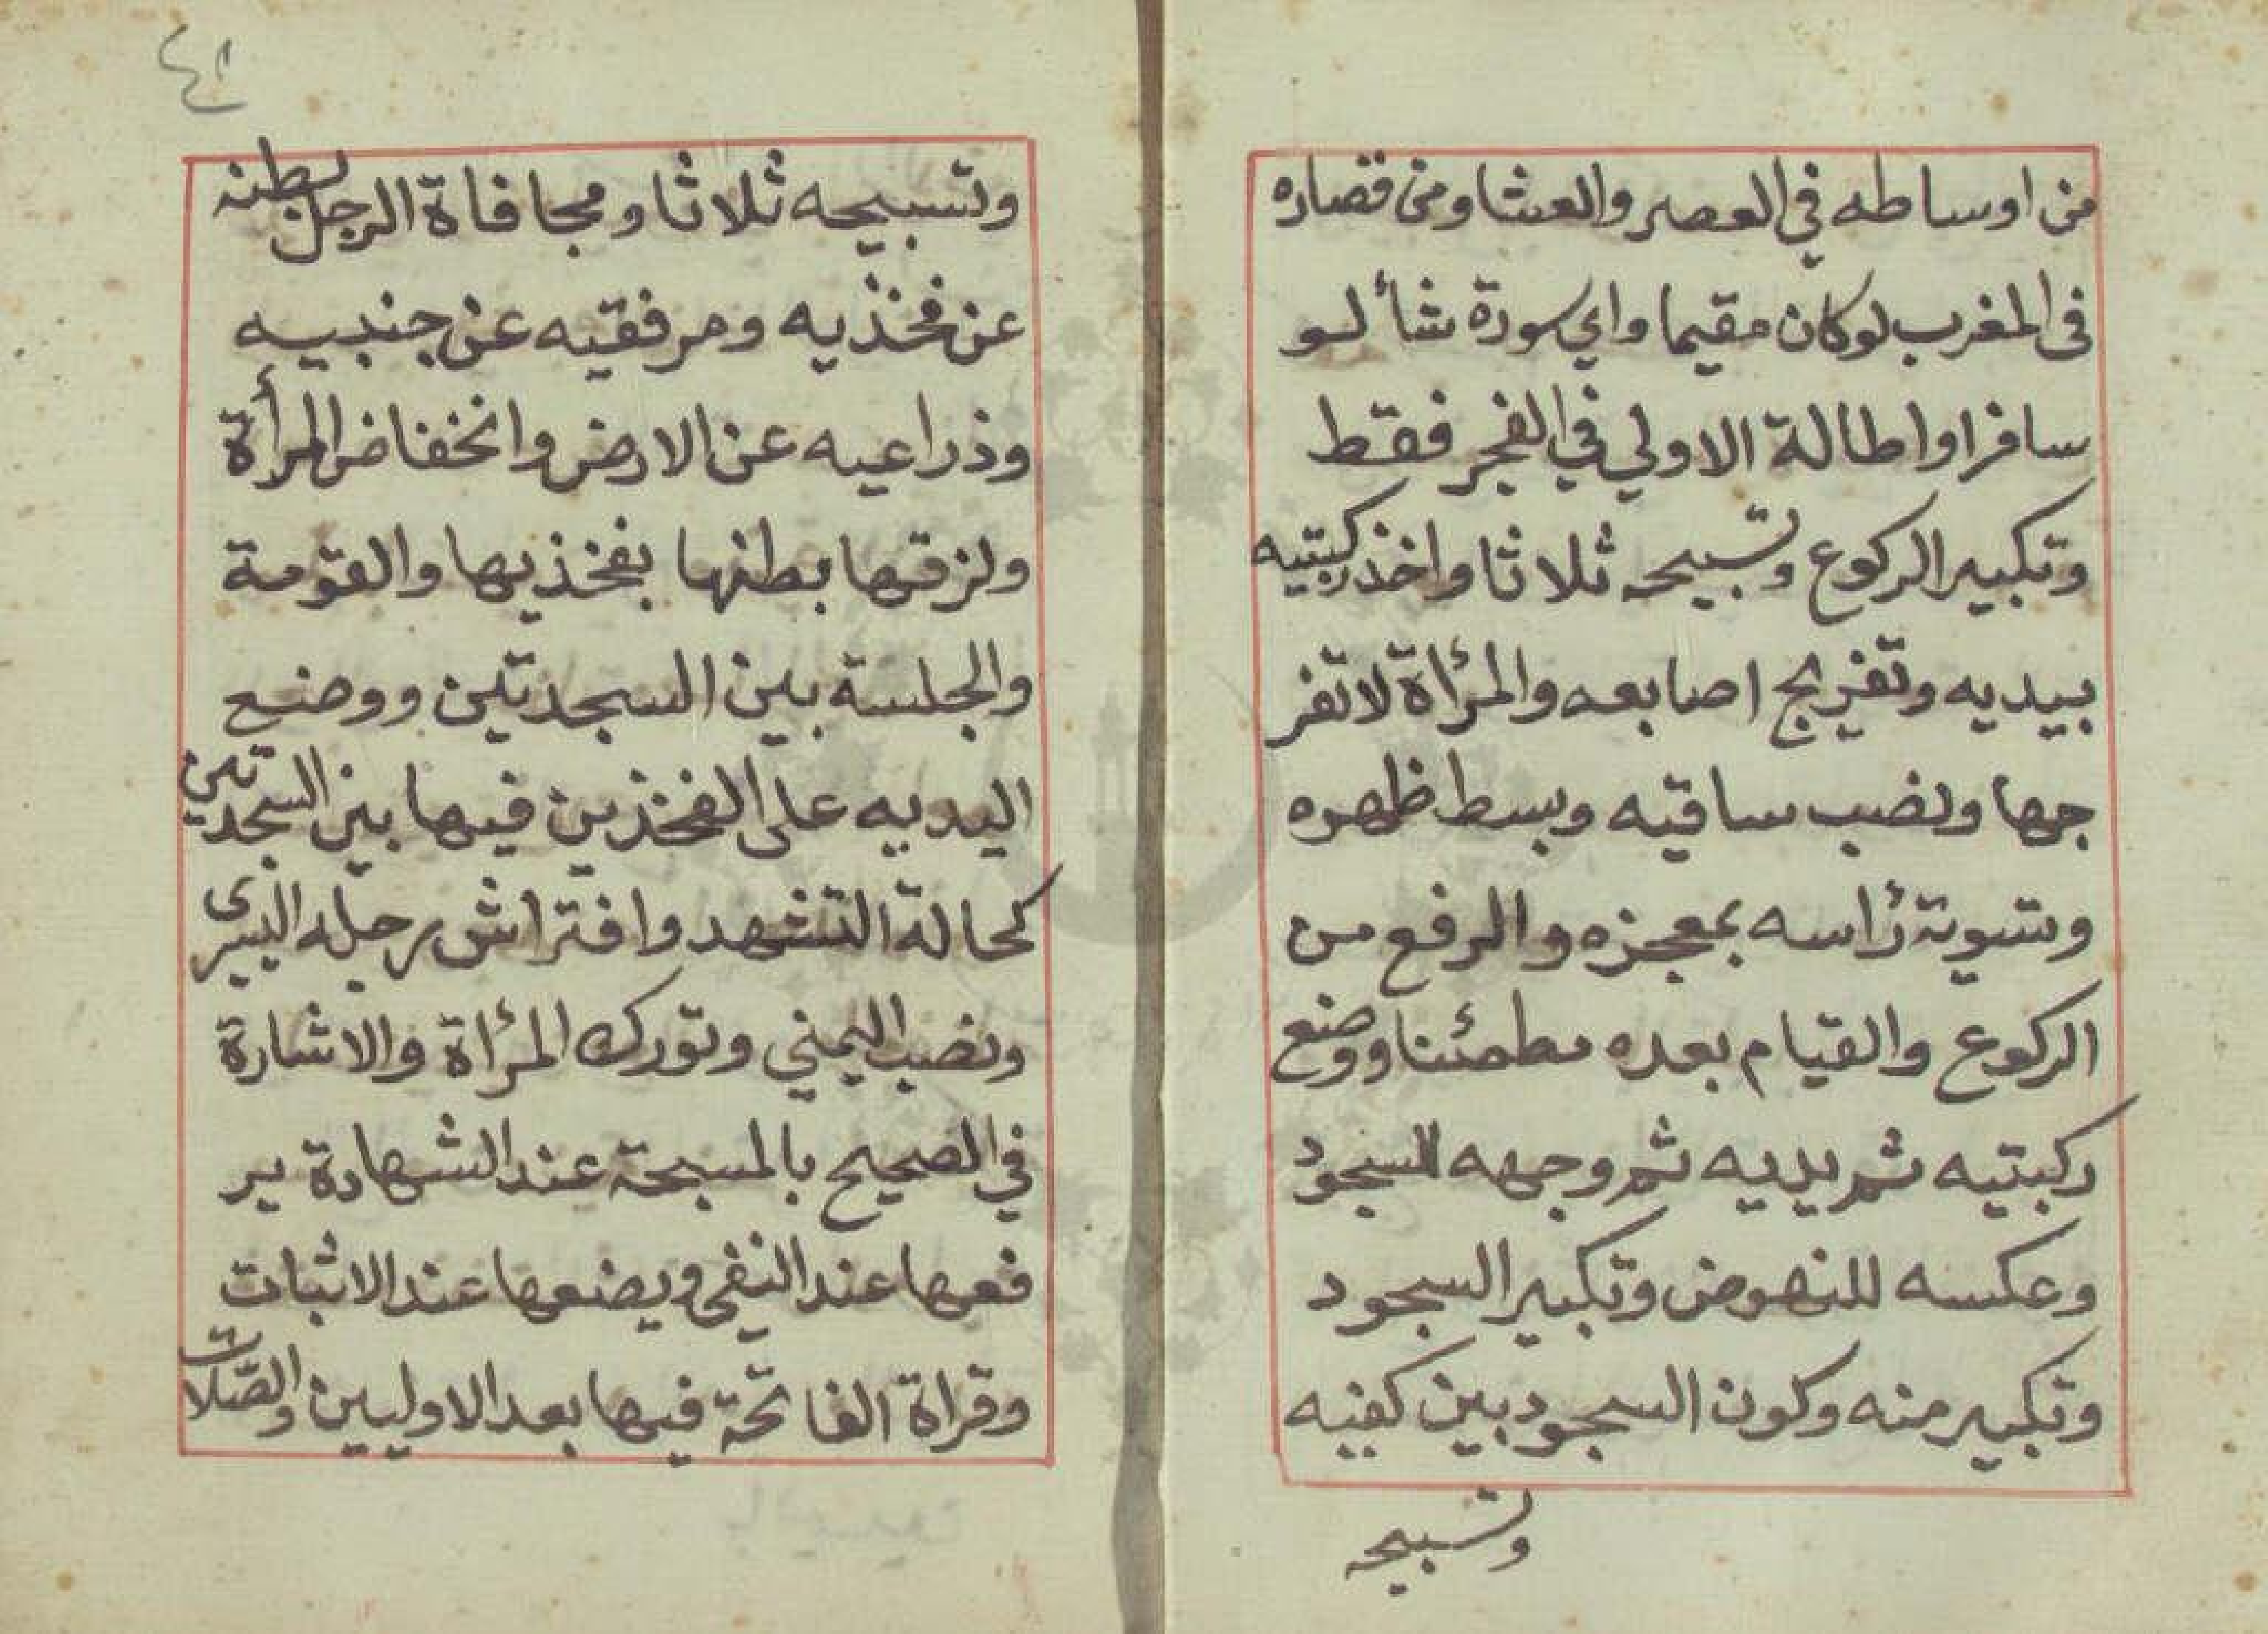 من اوساطه في العصر والعشا ومن قصاره
فى المغرب لو كان مقيما واي سورة شأ لو
سافرا واطالة الاولي في الفجر فقط
وتكبير الركوع وتسبيحه ثلاثا واخذ ركبتيه
بيديه وتفريج اصابعه والمرأة لا تفر
جها ونصب ساقيه وبسط ظهره
وتسوية رأسه بمعجزه والرفع من
الركوع والقيام بعده مطمئنا ووضع
ركبتيه ثم يديه ثم وجهه للسجود
وعكسه للنهوض وتكبير السجود
وتكبير منه وكون السجود بين كفيه
وتسبيحه
٤١
وتسبيحه ثلاثا ومجافاة الرجل بطنه
عن فخذيه ومرفقيه عن جنبيه
وذراعيه عن الارض وانخفاض المرأة
ولزقها بطنها بفخذيها والقومة
والجلسة بين السجدتين ووضع
اليديه على الفخذين فيها بين السجدتين
كحالة التشهد وافتراش رجله اليسرى
ونصب اليمني وتورك المرأة والاشارة
في الصحيح بالمسبحة عند الشهادة ير
فعها عند النفى ويضعها عند الاثبات
وقراة الفاتحة فيها بعد الاوليين والصّلات